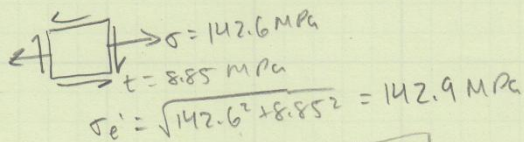 σ = 142.6 MPa
t = 8.85 MPa
σe' = √142.6² + 8.85² = 142.9 MPa